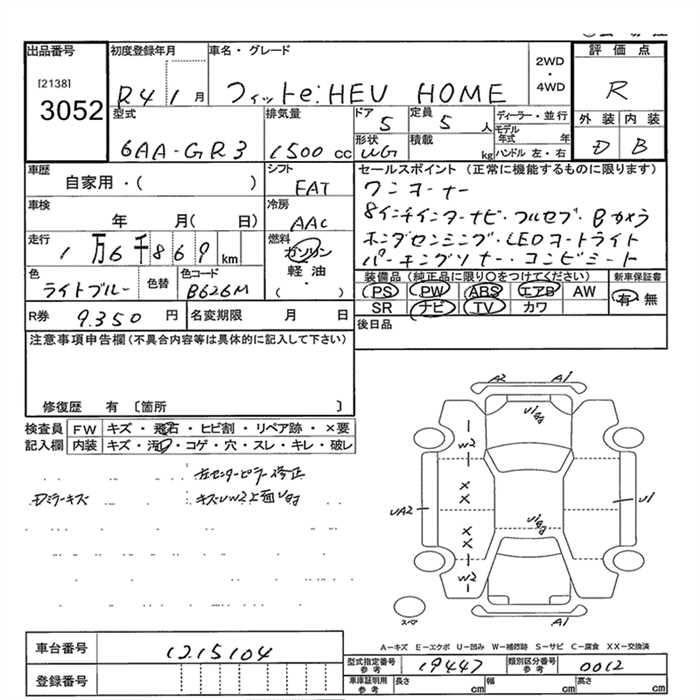 出品番号 初度登録年月 車名・グレード 評価点
[2138]
3052
R4 1月 フィットe:HEV HOME
2WD
・
4WD
R
外装 内装
D B
型式 排気量 ドア 定員 ディーラー・並行
6AA-GR3 1500cc 5 5人
モデル年式 年
形状 積載 ハンドル 左・右
UG kg
車歴 シフト セールスポイント(正常に機能するものに限ります)
自家用・( ) FAT
ワンオーナー
車検 冷房
年 月( 日) AAC
8インチインターナビ・フルセグ・Bカメラ
走行 燃料
1万6千869km ガソリン・軽油・( )
ホンダセンシング・LEDオートライト
パーキングソナー・コンビシート
色 色替 色コード
ライトブルー B626M
装備品(純正品に限り○をつけてください) 新車保証書
PS PW ABS エアB AW 有・無
SR ナビ TV カワ
R券 9.350円 名変期限 月 日
後日品
注意事項申告欄(不具合内容等は具体的に記入して下さい)
修復歴 有〔箇所 〕
検査員 FW キズ・飛石・ヒビ割・リペア跡・×要
記入欄 内装 キズ・汚レ・コゲ・穴・スレ・キレ・破レ
左センターピラー修正
Dミラーキズ
A2 A1
W2
X
X
UA2
U1
X
X
W2
A1
スペア
A-キズ E-エクボ U-凹み W-補修跡 S-サビ C-腐食 XX-交換済
車台番号 1215104
型式指定番号 参考 19447 類別区分番号 参考 0012
登録番号
車庫証明用 参考 長さ cm 幅 cm 高さ cm